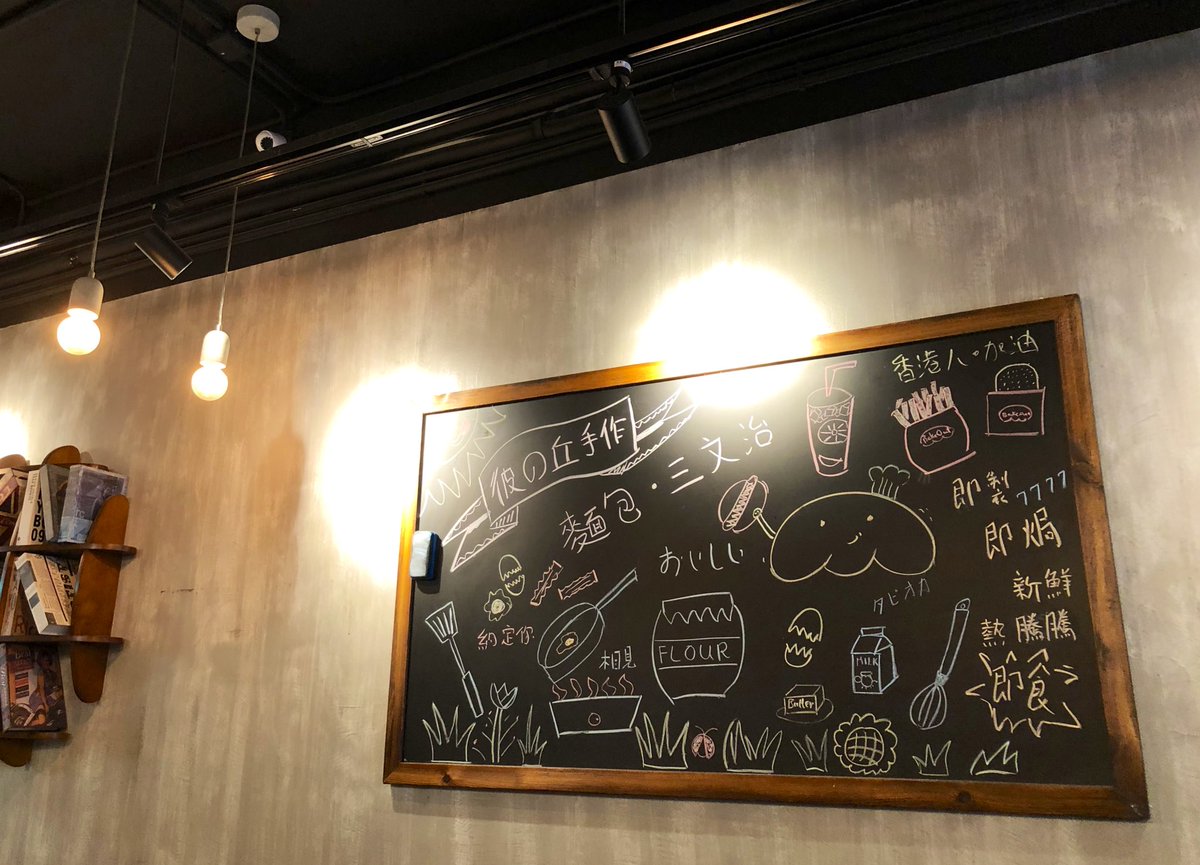 香港人。加油
彼の丘手作
麵包・三文治
BakeOut
即製
即焗
新鮮
熱騰騰
即食
おいしい
タピオカ
約定你
相見
FLOUR
MILK
Butter